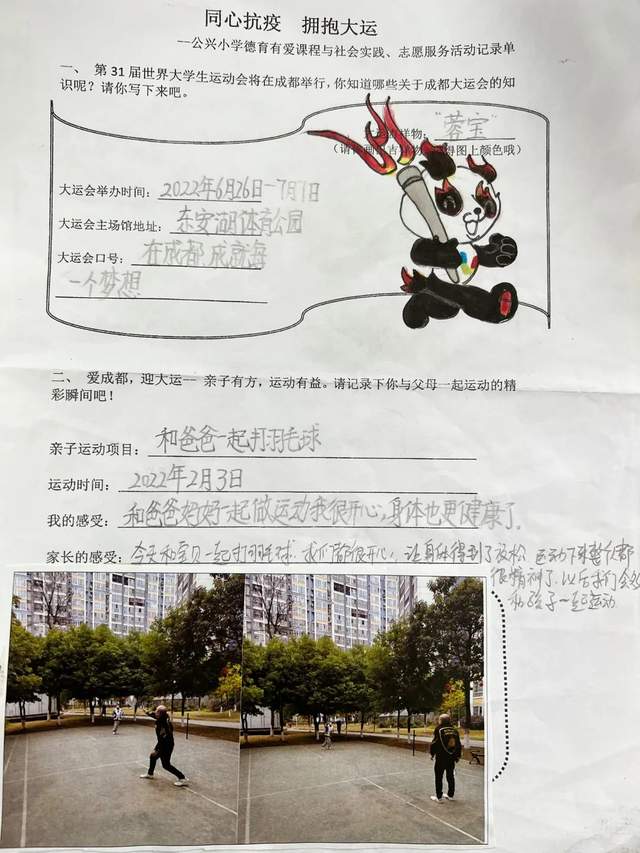 同心抗疫 拥抱大运
--公兴小学德育有爱课程与社会实践、志愿服务活动记录单
一、 第 31 届世界大学生运动会将在成都举行，你知道哪些关于成都大运会的知
识呢？请你写下来吧。
吉祥物："蓉宝"
（请 画 吉祥物 得图上颜色哦）
大运会举办时间：2022年6月26日-7月7日
大运会主场馆地址：东安湖体育公园
大运会口号：在成都 成就每
一个梦想
二、 爱成都，迎大运-- 亲子有方，运动有益。请记录下你与父母一起运动的精
彩瞬间吧！
亲子运动项目：和爸爸一起打羽毛球
运动时间：2022年2月3日
我的感受：和爸爸好好一起做运动我很开心，身体也更健康了.
家长的感受：今天和宝贝一起打羽毛球，我们都很开心，让身体得到了放松 运动下来整个都
很精神了，以后我们会多
和孩子一起运动